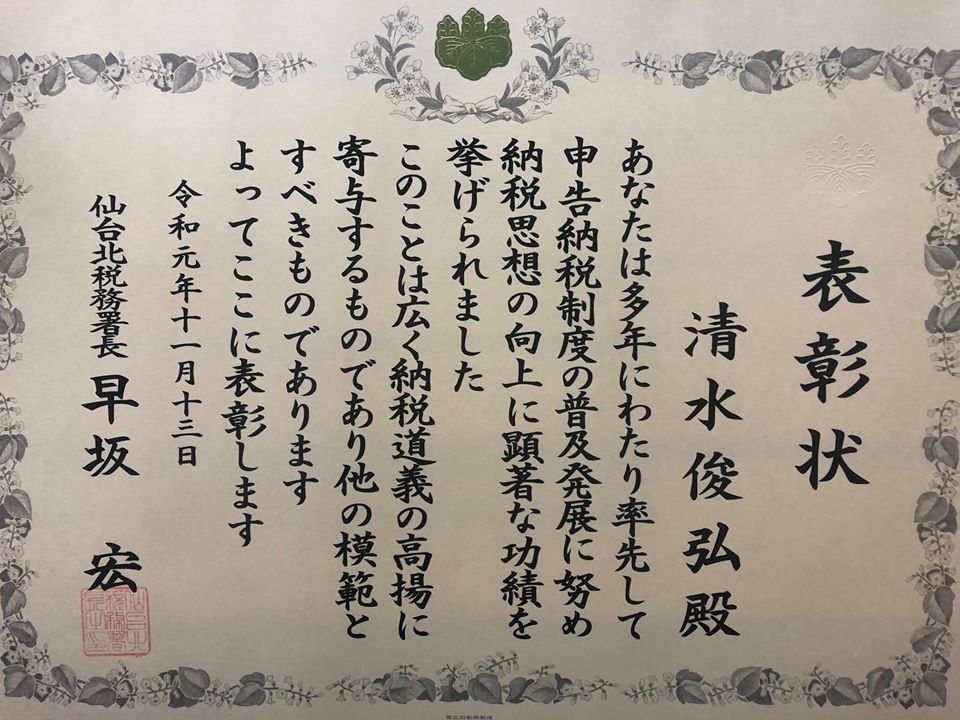 表彰状
清水俊弘殿
あなたは多年にわたり率先して
申告納税制度の普及発展に努め
納税思想の向上に顕著な功績を
挙げられました
このことは広く納税道義の高揚に
寄与するものであり他の模範と
すべきものであります
よってここに表彰します
令和元年十一月十三日
仙台北税務署長 早坂 宏